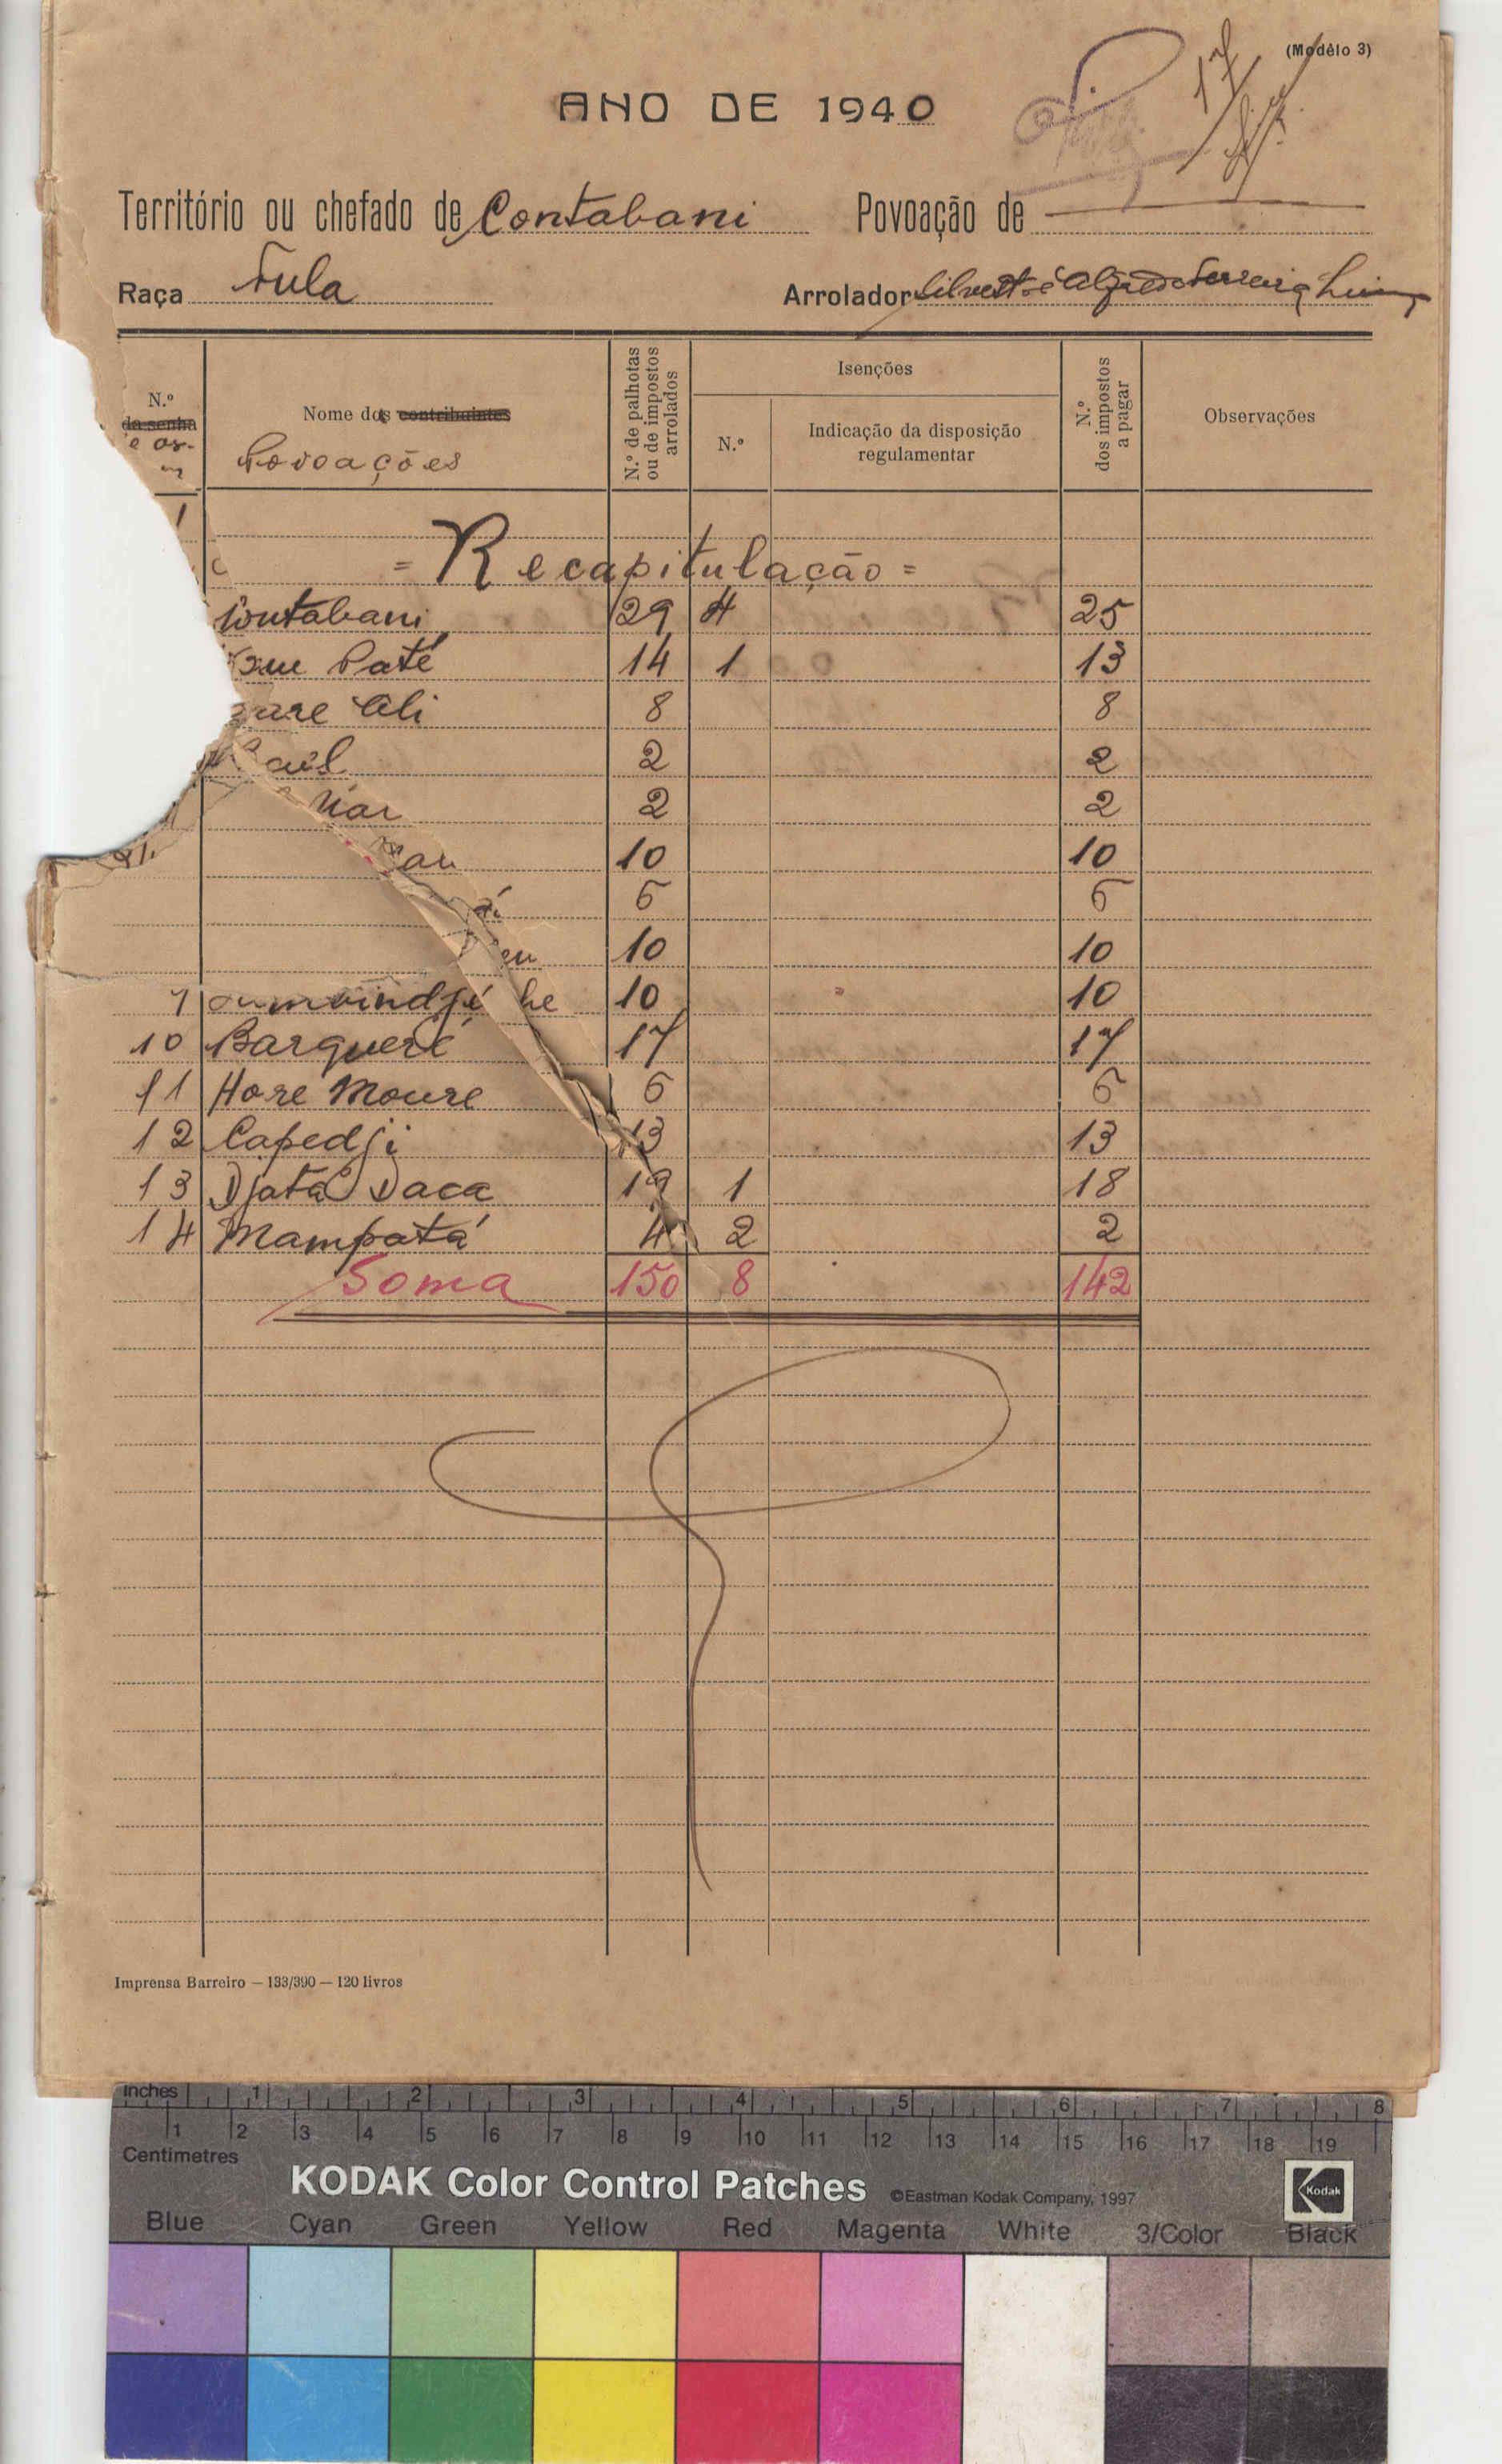 (Modêlo 3)
17
ANO DE 1940
Território ou chefado de Contabani Povoação de
Raça Fula Arrolador Silvestre Alfredo Ferreira
N.º da senha
Nome dos contribuintes
Povoações
N.º de palhotas ou de impostos arrolados
Isenções
N.º
Indicação da disposição regulamentar
N.º dos impostos a pagar
Observações
= Recapitulação =
Contabani 29 4 25
Paté 14 1 13
Ali 8 8
2 2
2 2
10 10
6 6
10 10
10 10
10 Barqueré 17 17
11 Hore Moure 6 6
12 Capedji 13 13
13 Djatá Daca 19 1 18
14 Mampatá 4 2 2
Soma 150 8 142
Imprensa Barreiro — 133/390 — 120 livros
Inches 1 2 3 4 5 6 7 8
1 2 3 4 5 6 7 8 9 10 11 12 13 14 15 16 17 18 19
Centimetres
KODAK Color Control Patches ©Eastman Kodak Company, 1997 Kodak
Blue Cyan Green Yellow Red Magenta White 3/Color Black